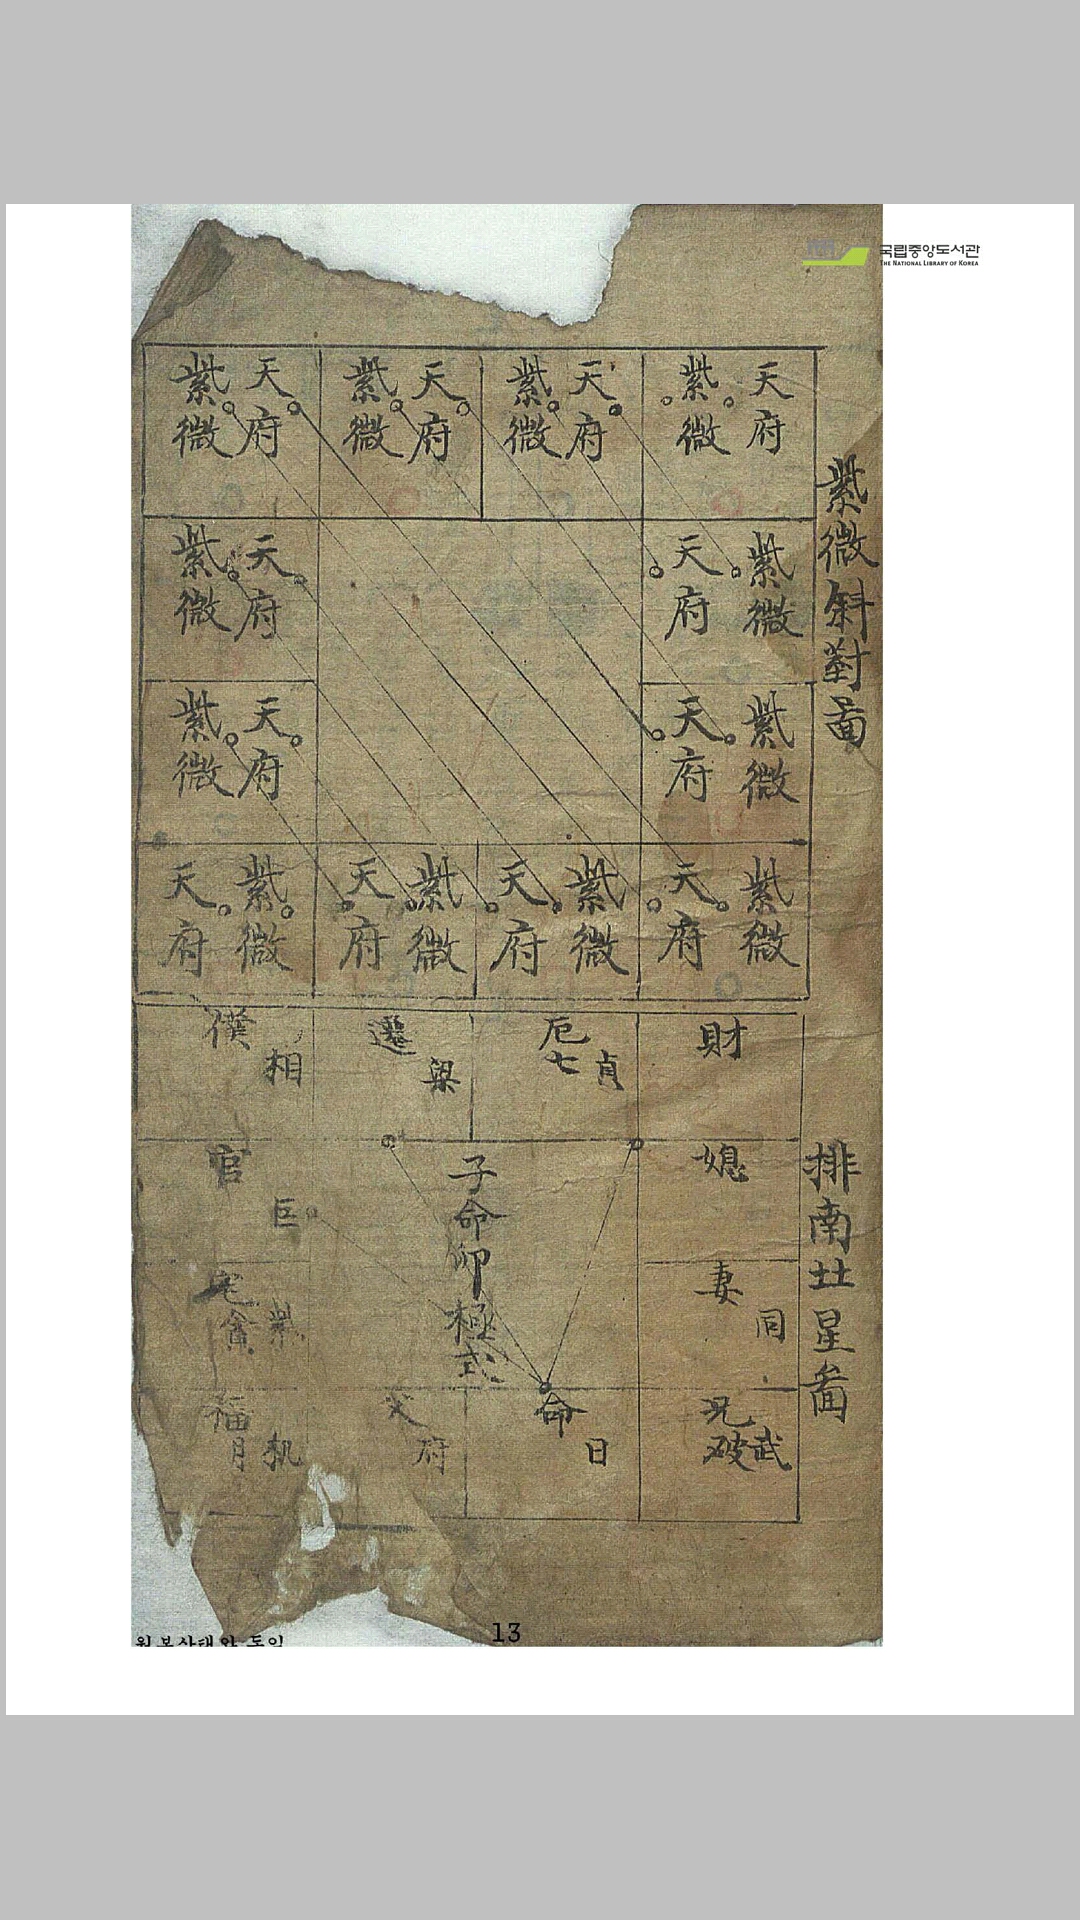 국립중앙도서관
THE NATIONAL LIBRARY OF KOREA
紫微斜對圖
天府 紫微
天府 紫微
天府 紫微
天府 紫微
紫微 天府
天府 紫微
紫微 天府
天府 紫微
紫微 天府
紫微 天府
紫微 天府
紫微 天府
排南斗星啚
財
厄 貞七
遷 梁
僕 相
媳
官 巨
妻 同
宅 紫
兄 武破
命 日
父 府
福 机月
子命卯極式
13